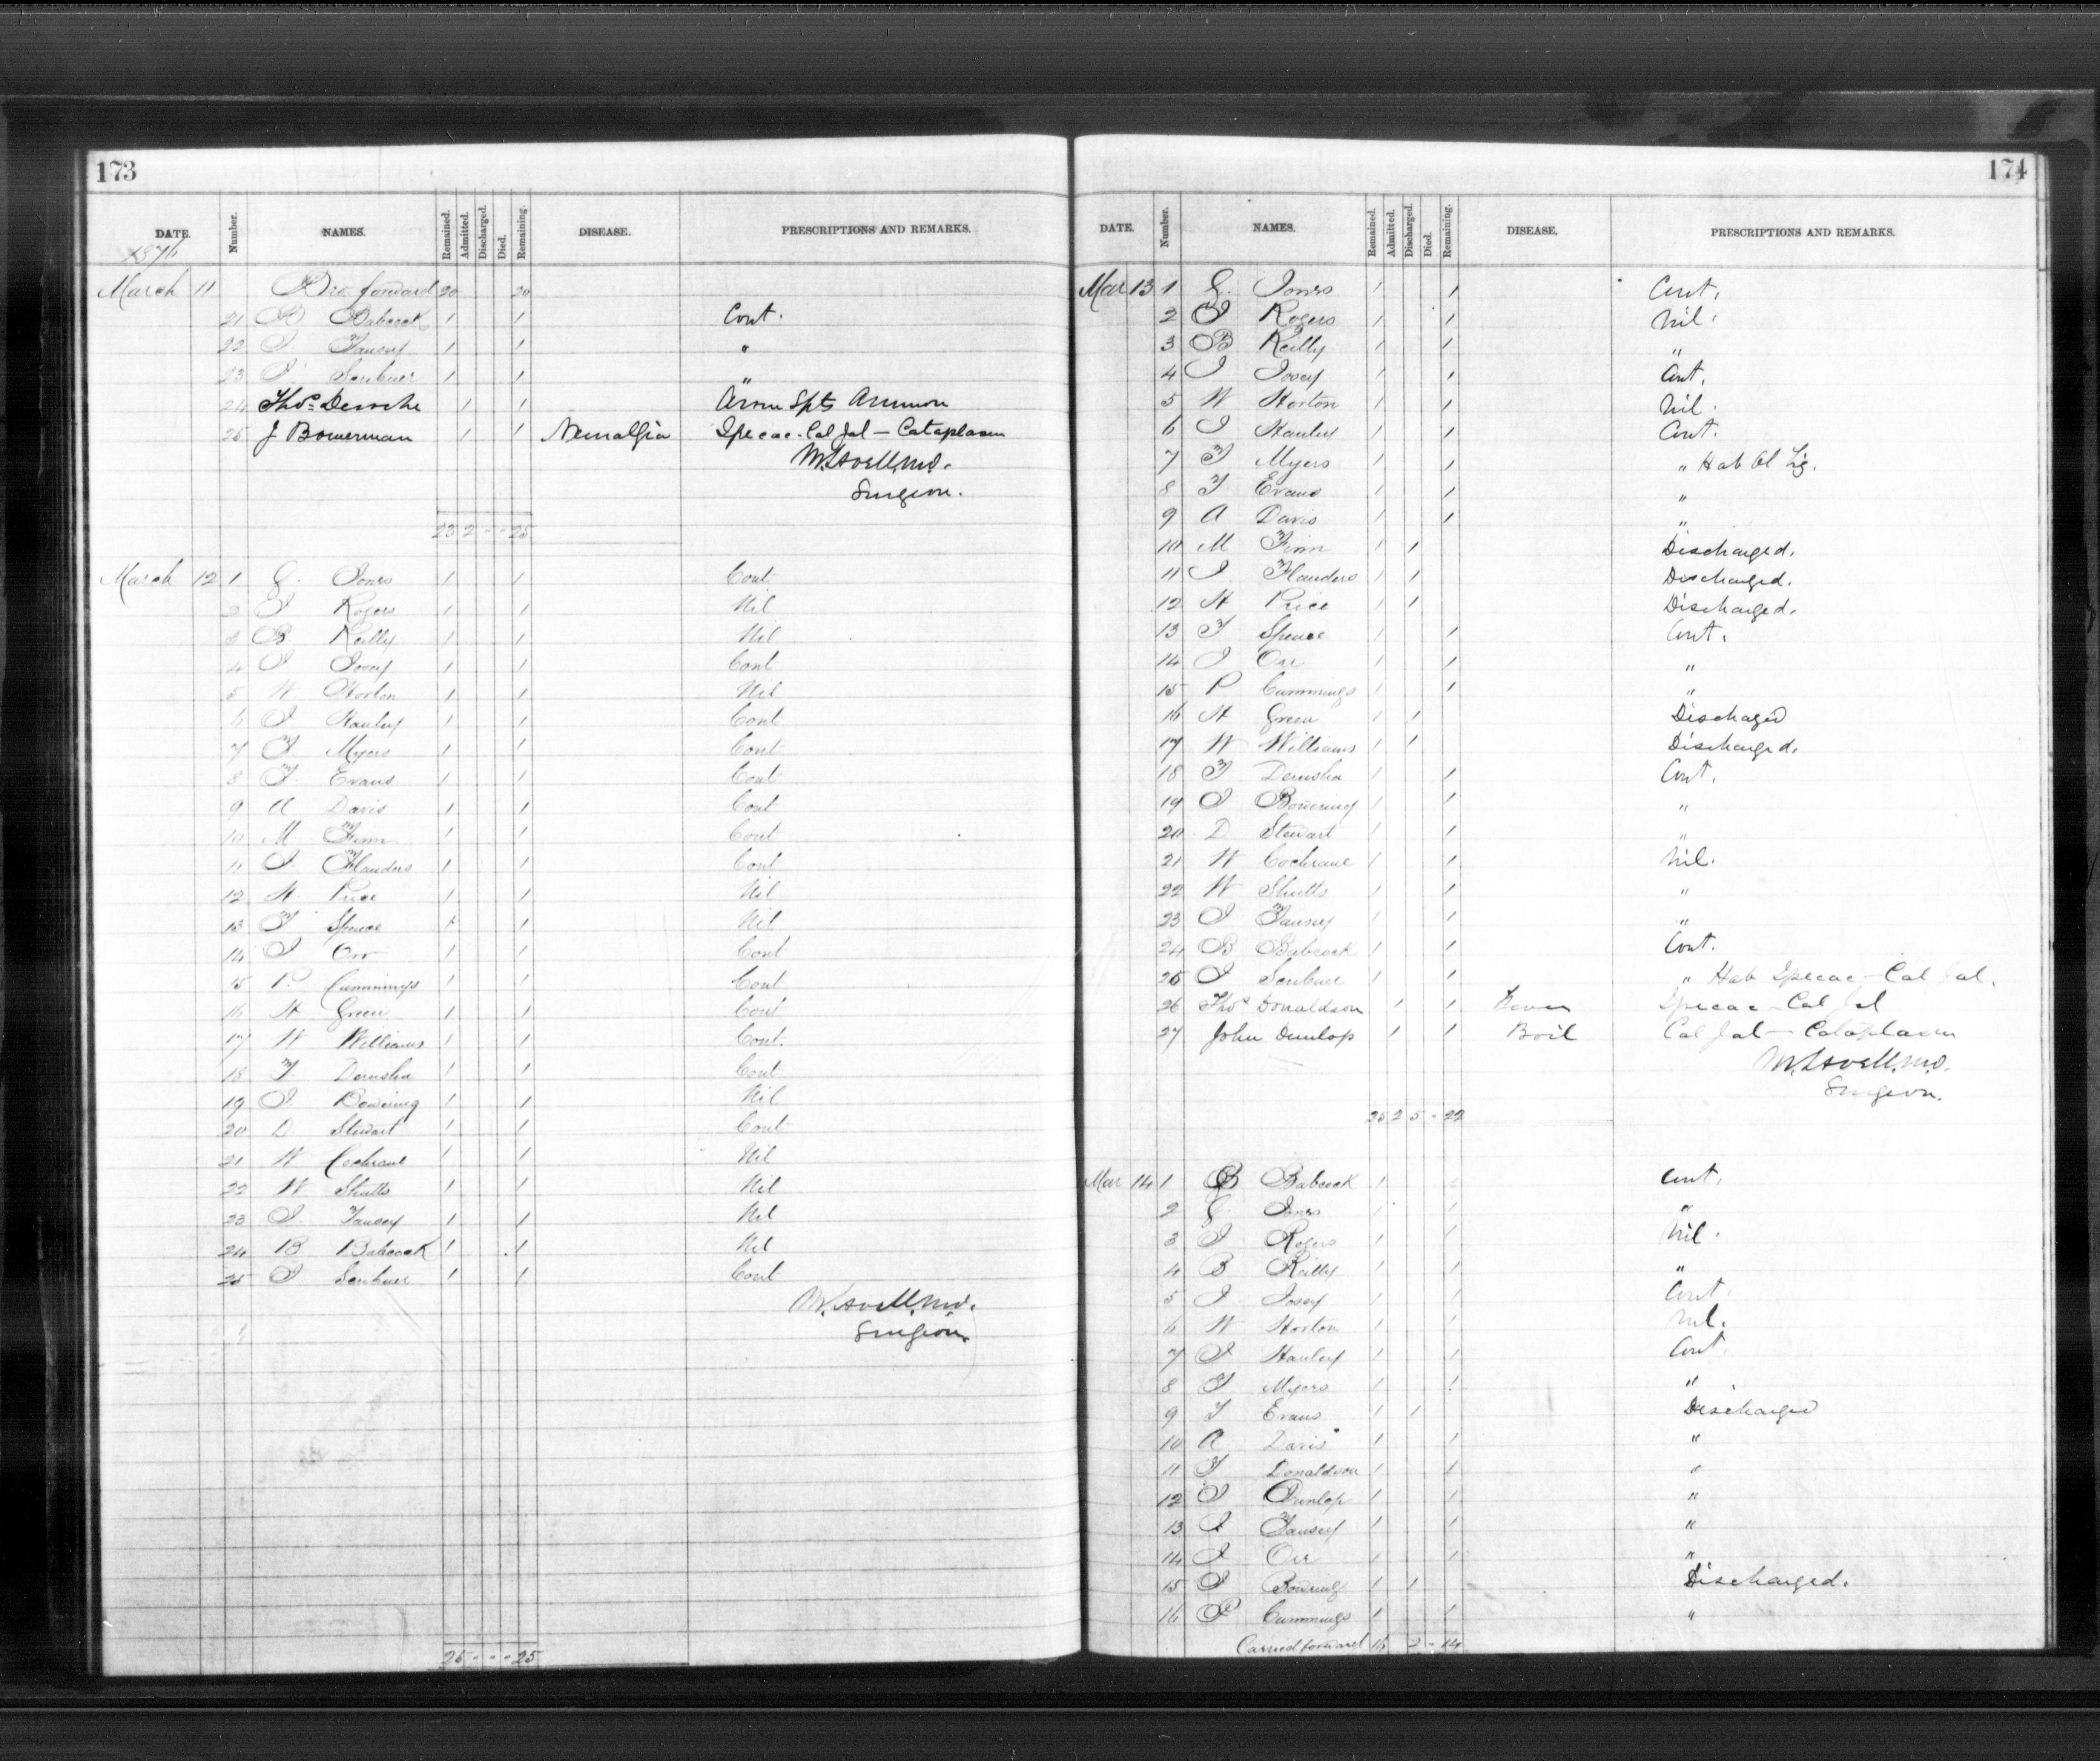 173
DATE. Number. NAMES. Remained. Admitted. Discharged. Died. Remaining. DISEASE. PRESCRIPTIONS AND REMARKS.
1876
March 11 Bro forward 20 20
21 B Babcock 1 1 Cont.
22 I Tansey 1 1 "
23 I Scribner 1 1 "
24 Thos 1 1 Arom Spts Ammon
25 J Bowerman 1 1 Neuralgia Ipecac - Cal Jal - Cataplasm
M. Lavell, MD.
Surgeon.
23 2 - - 25
March 12 1 G. Jones 1 1 Cont
2 I Rogers 1 1 Nil
3 B Reilly 1 1 Nil
4 I Josey 1 1 Cont
5 W Horton 1 1 Nil
6 I Hanley 1 1 Cont
7 T Myers 1 1 Cont
8 T Evans 1 1 Cont
9 A Davis 1 1 Cont
10 M Finn 1 1 Cont
11 I Flanders 1 1 Cont
12 H Price 1 1 Nil
13 T Spence 1 1 Nil
14 I Orr 1 1 Cont
15 P. Cummings 1 1 Cont
16 H Green 1 1 Cont
17 W Williams 1 1 Cont.
18 T Demsha 1 1 Cont
19 I Bowering 1 1 Nil
20 D Stewart 1 1 Cont
21 W Cochrane 1 1 Nil
22 W Shutts 1 1 Nil
23 I. Tansey 1 1 Nil
24 B Babcock 1 1 Nil
25 I Scribner 1 1 Cont
M. Lavell, MD.
Surgeon
25 - - - 25
174
DATE. Number. NAMES. Remained. Admitted. Discharged. Died. Remaining. DISEASE. PRESCRIPTIONS AND REMARKS.
Mar 13 1 G. Jones 1 1 Cont.
2 I Rogers 1 1 Nil.
3 B Reilly 1 1 "
4 I Josey 1 1 Cont.
5 W Horton 1 1 Nil.
6 I Hanley 1 1 Cont.
7 T Myers 1 1 " Hab Ol
8 T Evans 1 1 "
9 A Davis 1 1 "
10 M Finn 1 1 Discharged.
11 I Flanders 1 1 Discharged.
12 H Price 1 1 Discharged.
13 T Spence 1 1 Cont.
14 I Orr 1 1 "
15 P Cummings 1 1 "
16 H Green 1 1 Discharged
17 W Williams 1 1 Discharged.
18 T Demsha 1 1 Cont.
19 I Bowering 1 1 "
20 D Stewart 1 1 "
21 W Cochrane 1 1 Nil.
22 W Shutts 1 1 "
23 I Tansey 1 1 "
24 B Babcock 1 1 Cont.
25 I Scribner 1 1 " Hab Ipecac - Cal Jal.
26 Thos Donaldson 1 1 Fever Ipecac - Cal Jal
27 John Dunlop 1 1 Boil Cal Jal - Cataplasm
M. Lavell, MD.
Surgeon.
25 2 5 - 22
Mar 14 1 B Babcock 1 1 Cont.
2 G Jones 1 1 "
3 I Rogers 1 1 Nil.
4 B Reilly 1 1 "
5 I Josey 1 1 Cont.
6 W Horton 1 1 Nil.
7 I Hanley 1 1 Cont.
8 T Myers 1 1 "
9 T Evans 1 1 Discharged
10 A Davis 1 1 "
11 T Donaldson 1 1 "
12 I Dunlop 1 1 "
13 I Tansey 1 1 "
14 I Orr 1 1 "
15 I Bowering 1 1 Discharged.
16 P Cummings 1 1 "
Carried forward 16 2 - 14